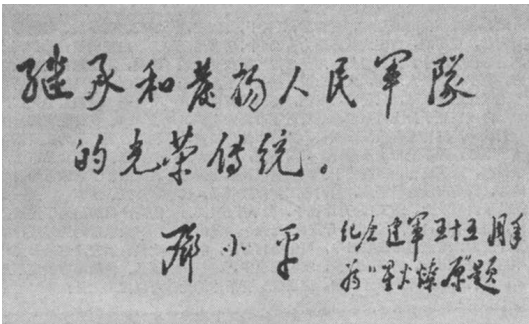 继承和发扬人民军隊
的光荣传统。
邓小平
纪念建军五十五周年
为“星火燎原”题